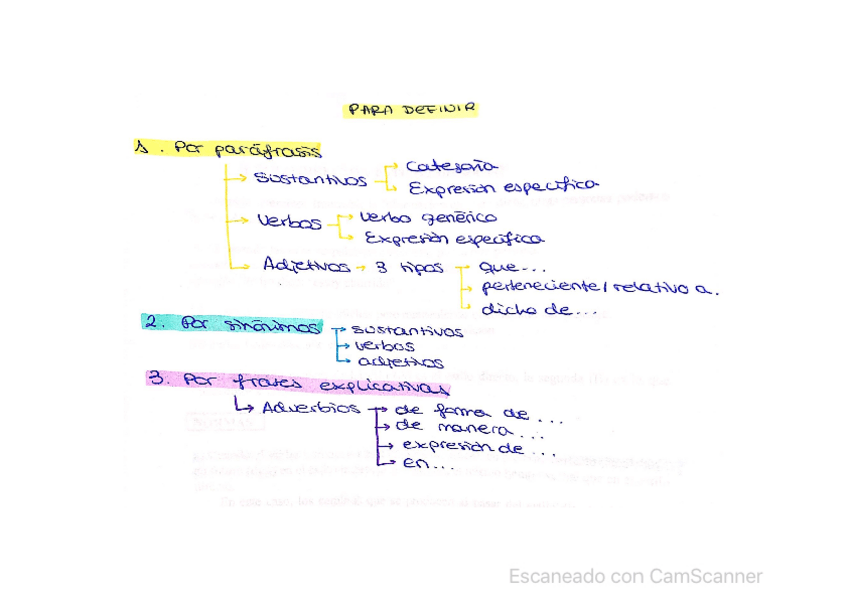 PARA DEFINIR
1. Por paráfrasis
Sustantivos
Categoría
Expresión específica
Verbos
Verbo genérico
Expresión específica
Adjetivos → 3 tipos
que...
perteneciente / relativo a.
dicho de...
2. Por sinónimos
sustantivos
verbos
adjetivos
3. Por frases explicativas
Adverbios
de forma de ...
de manera ...
expresión de ...
en...
Escaneado con CamScanner